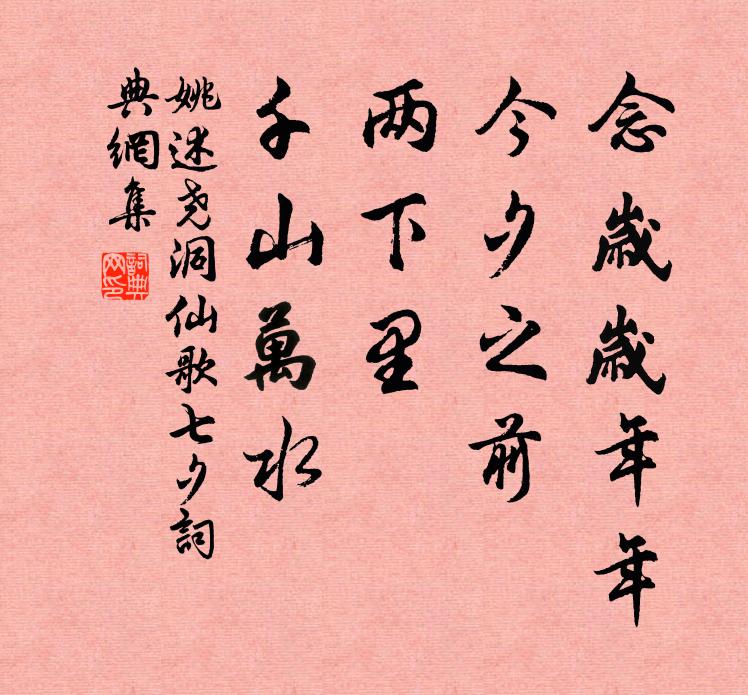 念歲歲年年
今夕之前
两下里
千山萬水
姚述尧洞仙歌七夕詞
典網集
詞典
网印